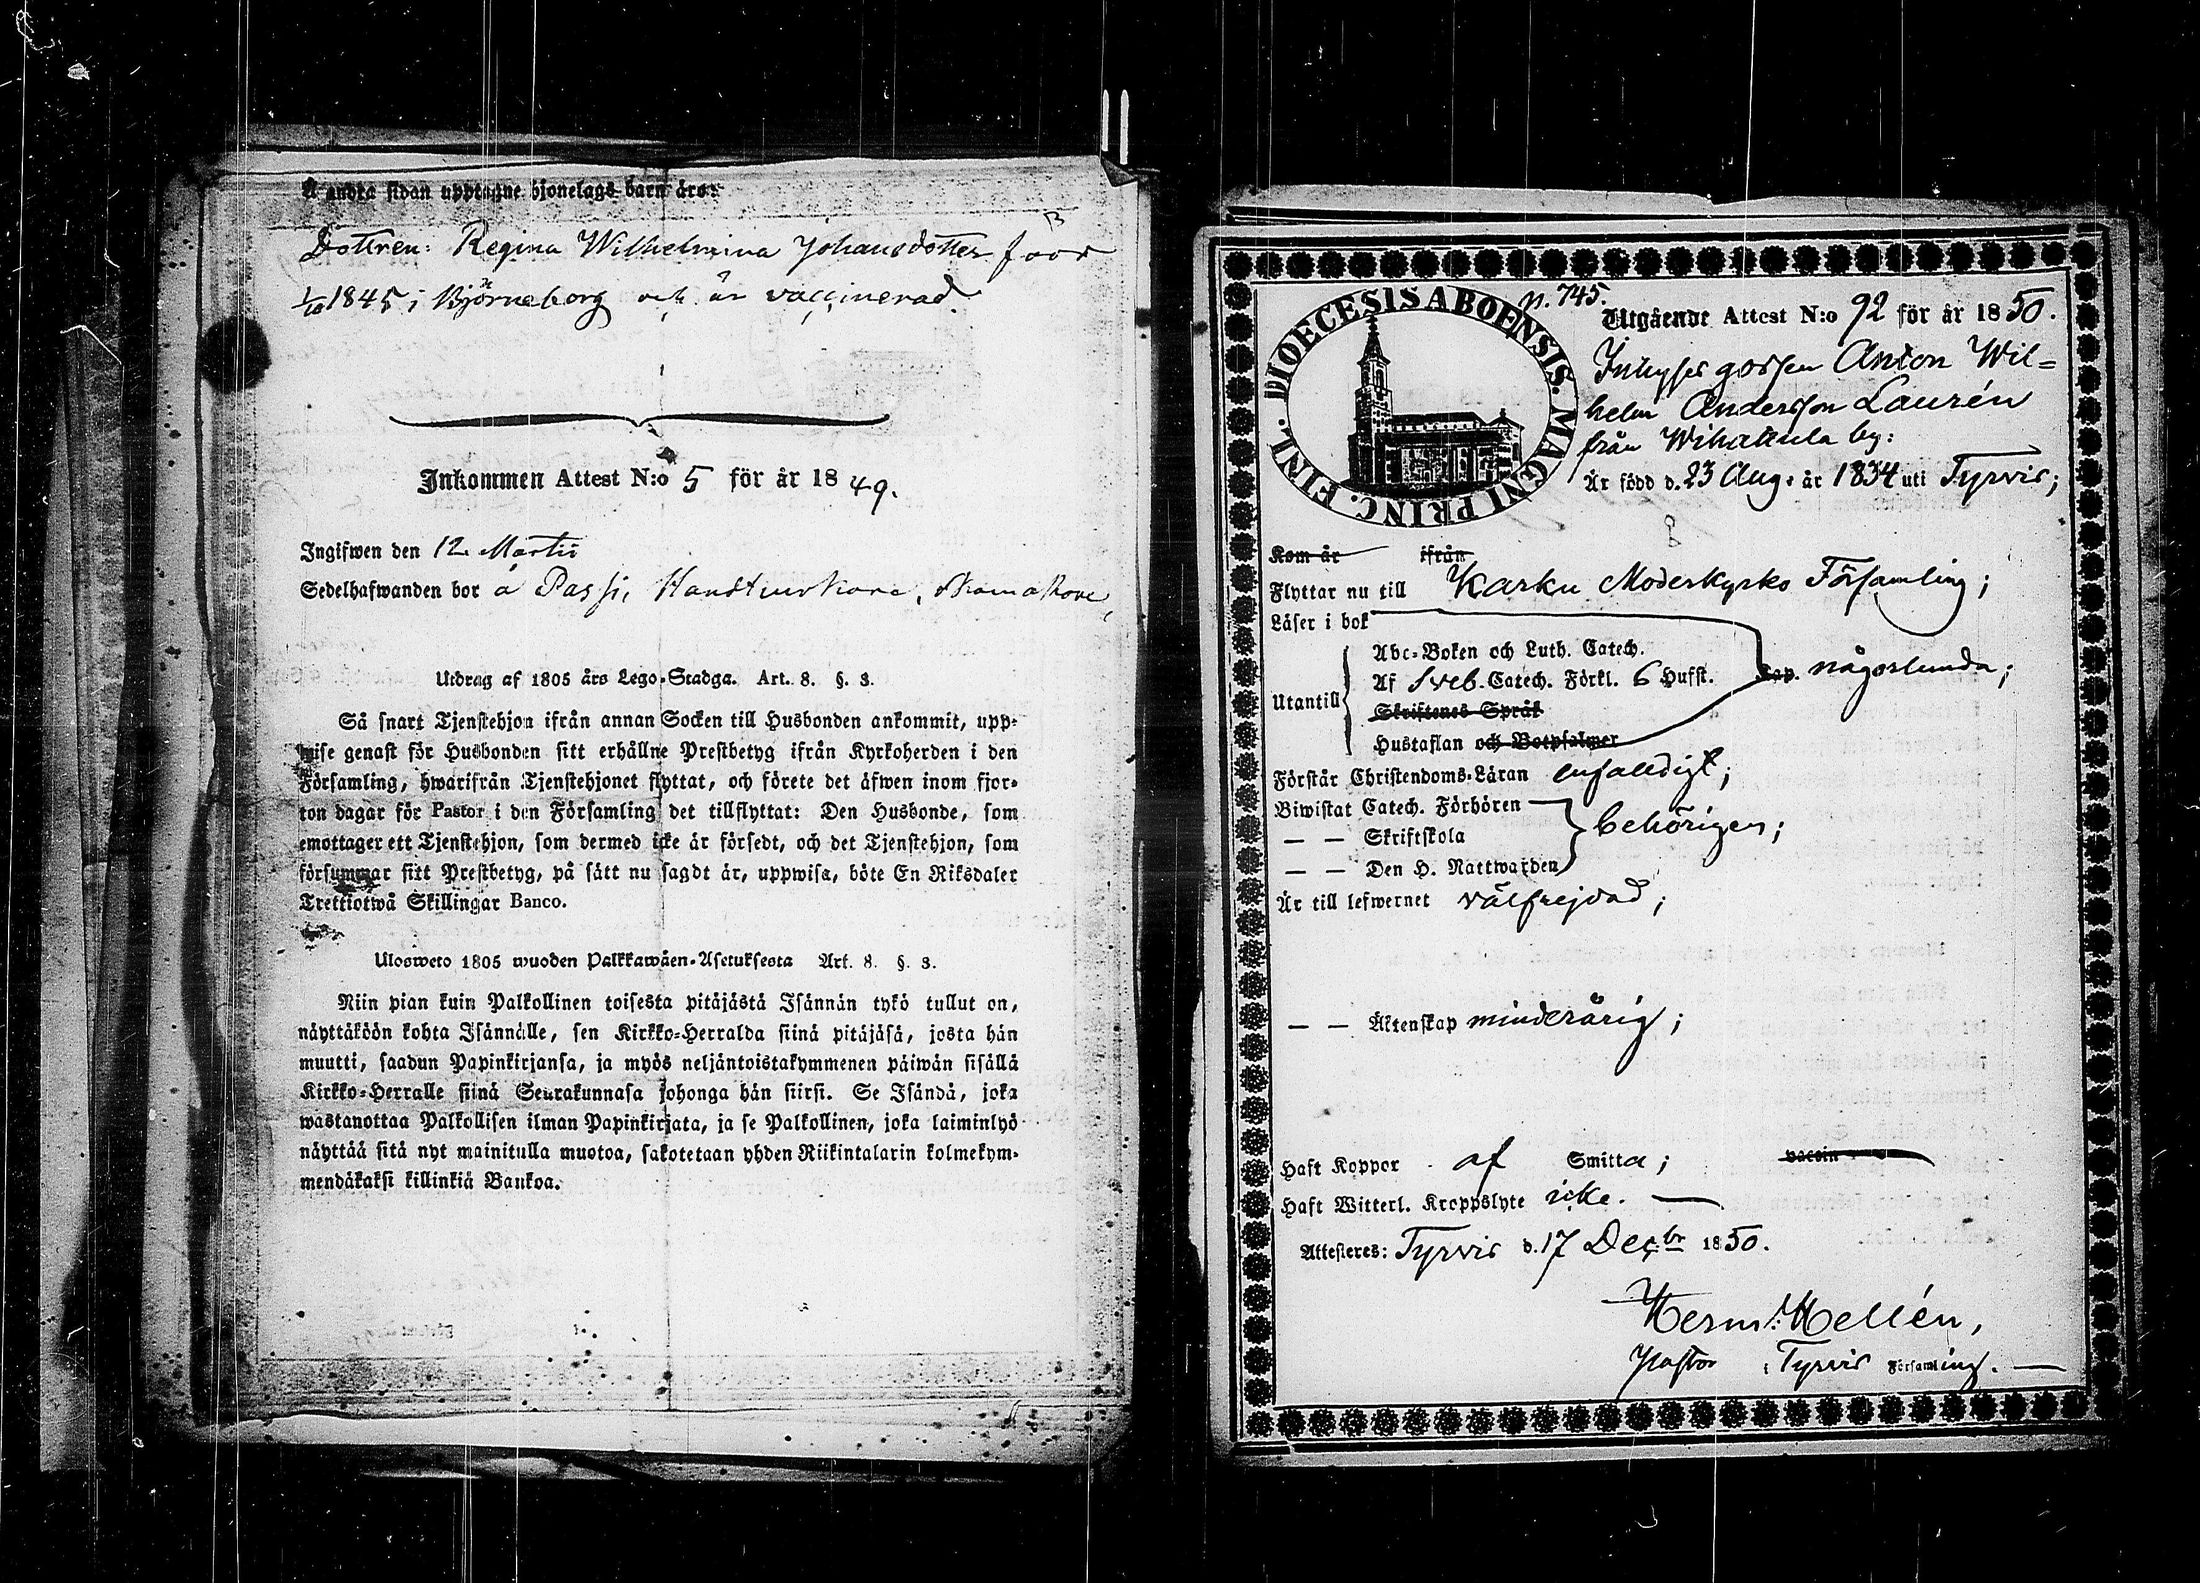 Å andra sidan upptagne hjonelags barn äro:
Dottren: Regina Wilhelmina Johansdotter
1/10 1845 i Björneborg och är vaccinerad
Inkommen Attest N:o 5 för år 1849.
Ingifwen den 12 Martii
Sedelhafwanden bor å Passi,
Utdrag af 1805 års Lego-Stadga. Art. 8. §. 3.
Så snart Tjenstehjon ifrån annan Socken till Husbonden ankommit, upp-
wise genast för Husbonden sitt erhållne Prestbetyg ifrån Kyrkoherden i den
Församling, hwarifrån Tjenstehjonet flyttat, och förete det äfwen inom fjor-
ton dagar för Pastor i den Församling det tillflyttat: Den Husbonde, som
emottager ett Tjenstehjon, som dermed icke är försedt, och det Tjenstehjon, som
försummar sitt Prestbetyg, på sätt nu sagdt är, uppwisa, böte En Riksdaler
Trettiotwå Skillingar Banco.
Ulosweto 1805 wuoden Palkkawäen-Asetuksesta Art. 8. §. 3.
Niin pian kuin Palkollinen toisesta pitäjästä Isännän tykö tullut on,
näyttäköön kohta Isännälle, sen Kirkko-Herralda siinä pitäjäsä, josta hän
muutti, saadun Papinkirjansa, ja myös neljäntoistakymmenen päiwän sisällä
Kirkko-Herralle siinä Seurakunnasa johonga hän siirsi. Se Isändä, joka
wastanottaa Palkollisen ilman Papinkirjata, ja se Palkollinen, joka laiminlyö
näyttää sitä nyt mainitulla muotoa, sakotetaan yhden Riikintalarin kolmekym-
mendäkaksi killinkiä Bankoa.
DIOECESIS ABOENSIS. MAGNI PRINC. FINL.
n. 745.
Utgående Attest N:o 92 för år 1850.
Inhyses gossen Anton Wil=
helm Andersson Laurén
från Wihattula by:
Är född d. 23 Aug. år 1834 uti Tyrvis;
Kom år ifrån
Flyttar nu till Karku Moderkyrko Församling;
Läser i bok
Abc-Boken och Luth. Catech.
Utantill Af Sveb. Catech. Förkl. 6 Hufst. Kap. någorlunda;
Skriftenes Språk
Hustaflan och Botpsalmer
Förstår Christendoms-Läran enfaldigt;
Biwistat Catech. Förhören
— — Skriftskola behörigen;
— — Den H. Nattwarden
Är till lefwernet välfrejdad;
— — Äktenskap minderårig;
Haft Koppor af Smitta; vaccin
Haft Witterl. Kroppslyte icke.
Attesteres: Tyrvis d. 17 Decbr 1850.
Herm: Hellén,
Pastor i Tyrvis Församling.